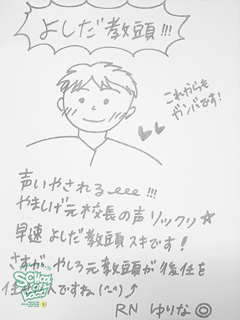 よしだ教頭!!!
これからも
ガンバです!
声いやされる〜!!!
やましげ元校長の声ソックリ☆
早速よしだ教頭スキです!
さすが、やしろ元教頭が後任を
任 人ですね(^-^)♪
RN ゆりな◎